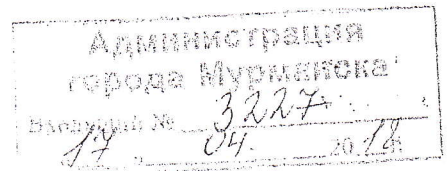 Администрация
города Мурманска
Входящий № 3227
"17" 04. 2018